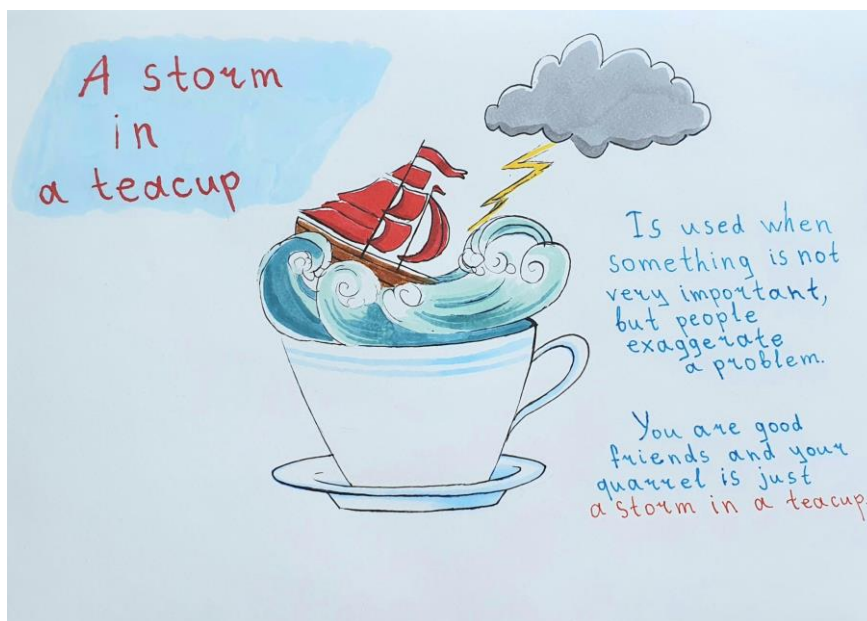 A storm
in
a teacup
Is used when
something is not
very important,
but people
exaggerate
a problem.
You are good
friends and your
quarrel is just
a storm in a teacup.